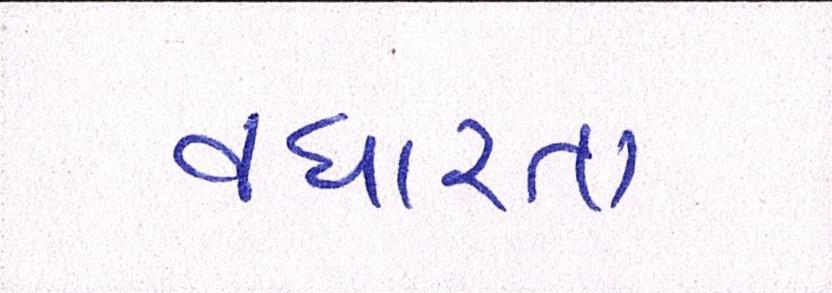 વધારતા